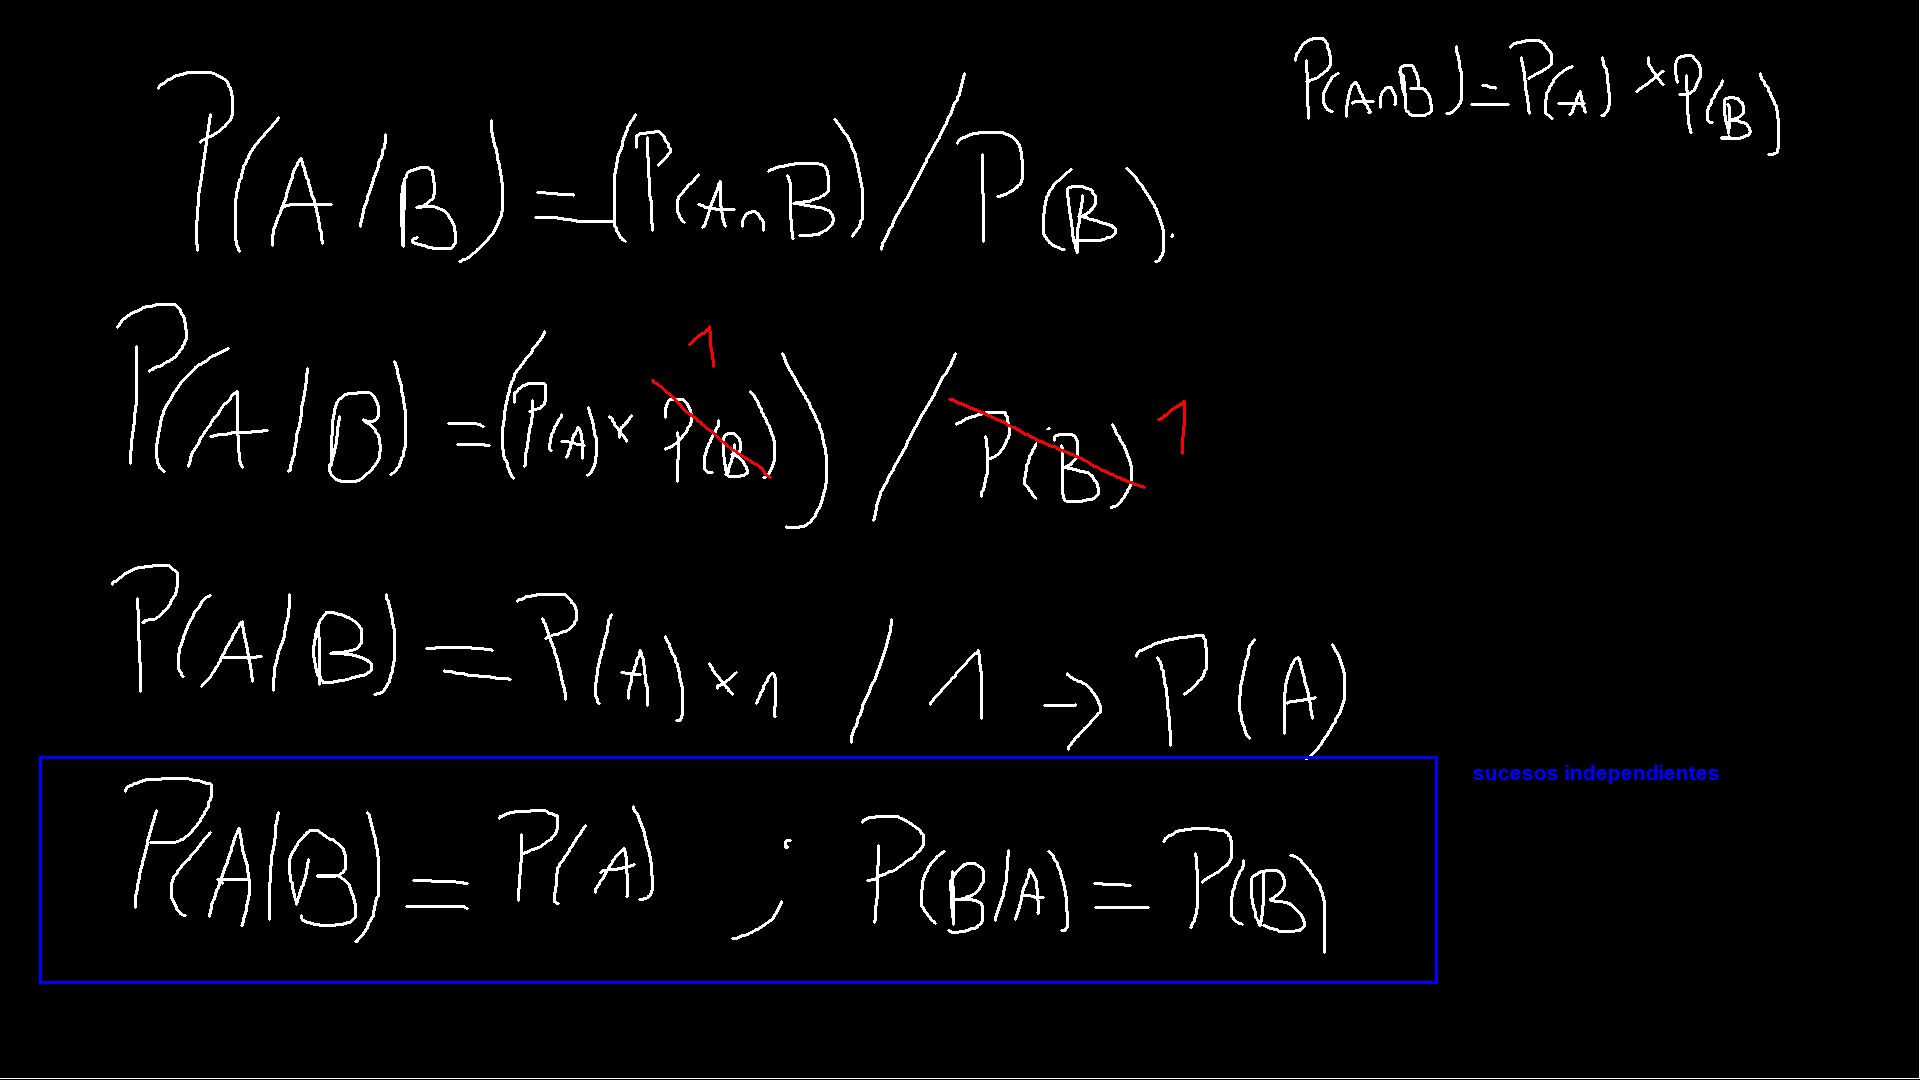 P(A∩B)=P(A)×P(B)
P(A/B)=(P(A∩B)/P(B).
P(A/B)=(P(A)×P(B))/P(B)
1 1
P(A/B)=P(A)×1/1→P(A)
P(A/B)=P(A) ; P(B/A)=P(B)
sucesos independientes